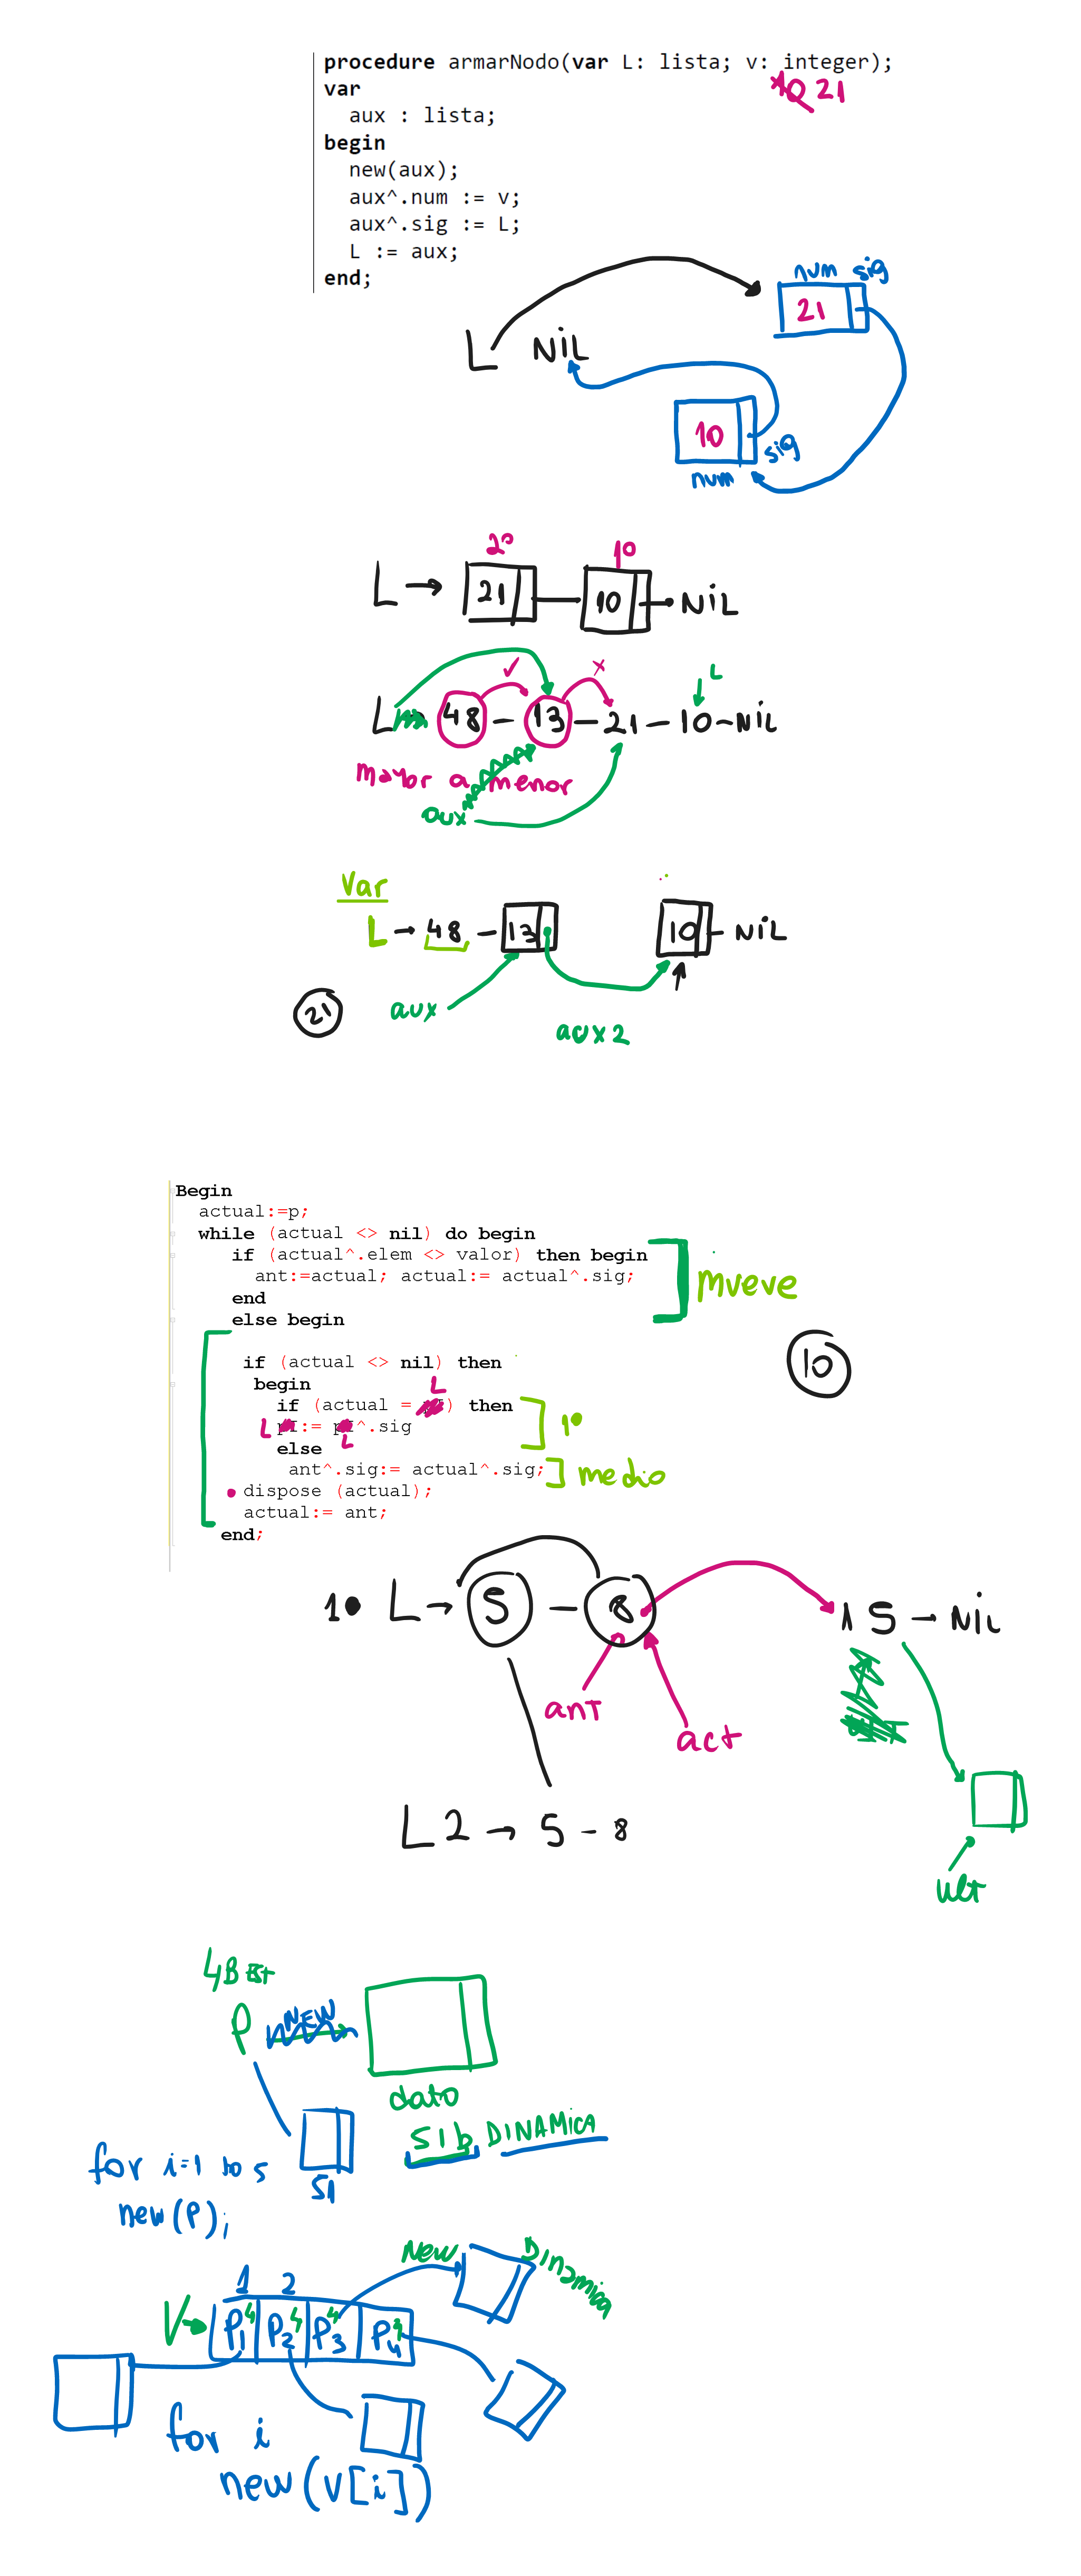 procedure armarNodo(var L: lista; v: integer);
var
10 21
aux : lista;
begin
new(aux);
aux^.num := v;
aux^.sig := L;
L := aux;
end;
num sig
21
L NiL
10 sig
num
2º 1º
L → 21 10 NiL
L
L 48 - 13 - 21 - 10 - NiL
mayor a menor
aux
Var
L → 48 - 13 10 - NiL
21 aux
aux 2
Begin
actual:=p;
while (actual <> nil) do begin
if (actual^.elem <> valor) then begin
ant:=actual; actual:= actual^.sig;
end
else begin
mueve
10
if (actual <> nil) then
begin
L
if (actual = ) then
L := ^.sig 1º
L
else
ant^.sig:= actual^.sig; medio
dispose (actual);
actual:= ant;
end;
10 L → 5 - 8 15 → NiL
ant
act
L2 → 5 - 8
ult
P NEW
dato
51b DINAMiCA
for i=1 to 5 51
new(P);
New Dinamica
1 2
V → P1 4 P2 4 P3 4 P4 4
for i
new(v[i])